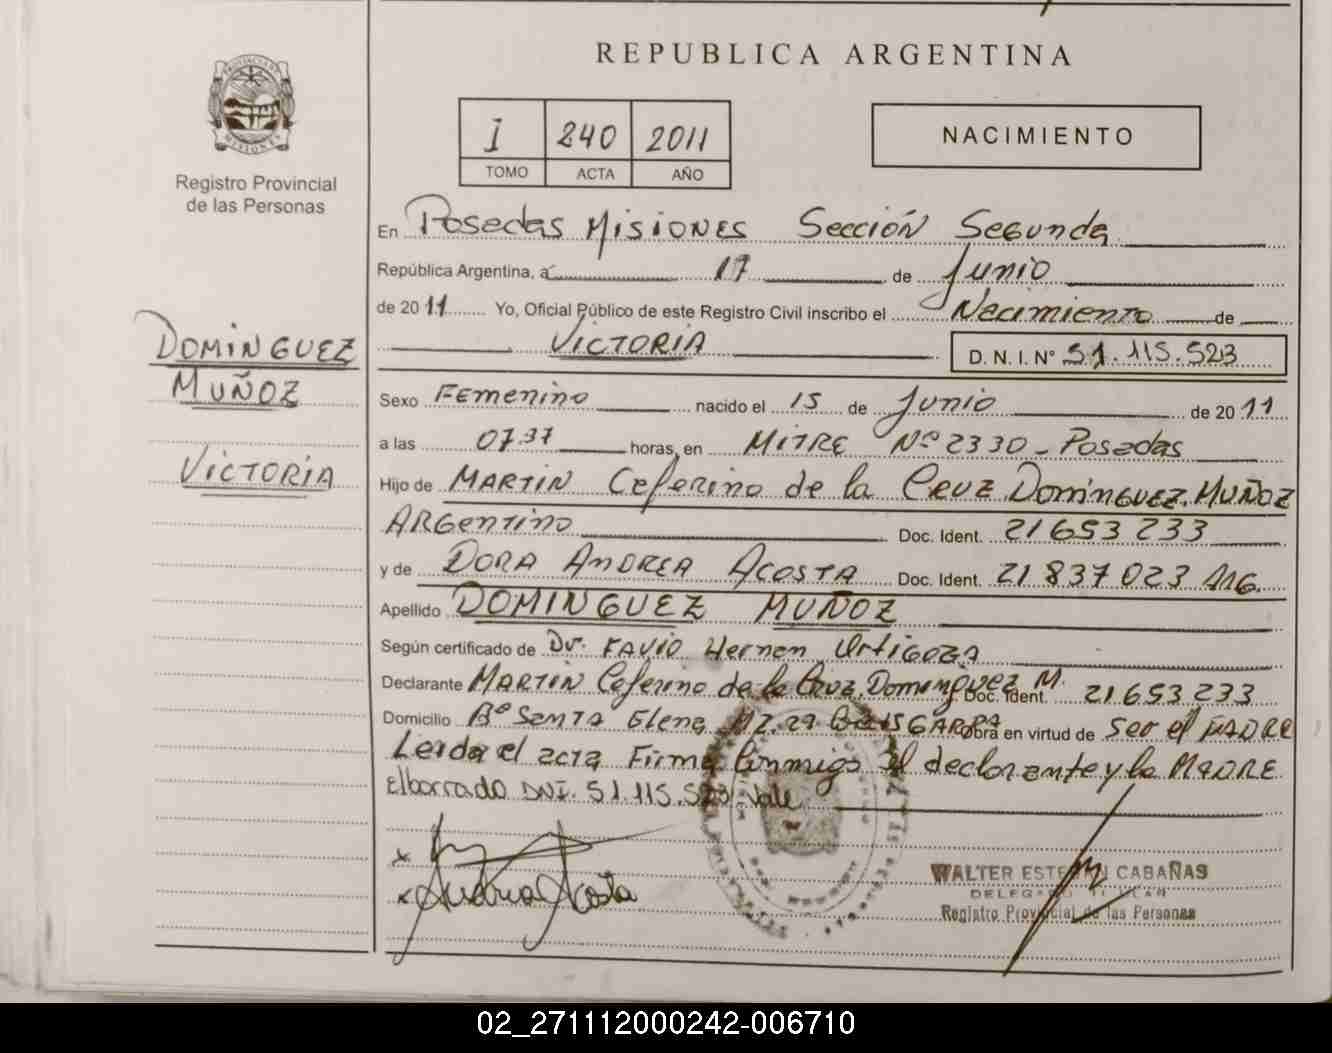 REPUBLICA ARGENTINA
I 240 2011
TOMO ACTA AÑO
NACIMIENTO
PROVINCIA DE
MISIONES
Registro Provincial
de las Personas
DOMINGUEZ
MUÑOZ
VICTORIA
En Posadas Misiones Sección Segunda
República Argentina, a 17 de Junio
de 2011 Yo, Oficial Público de este Registro Civil inscribo el Nacimiento de
VICTORIA D. N. I. Nº 51.115.523
Sexo Femenino nacido el 15 de Junio de 2011
a las 07.37 horas, en MITRE Nº 2330 - Posadas
Hijo de MARTIN Ceferino de la CRUZ DOMINGUEZ MUÑOZ
ARGentino Doc. Ident. 21 653 233
y de DORA ANDREA ACOSTA Doc. Ident. 21 837 023 116
Apellido DOMINGUEZ MUÑOZ
Según certificado de Dr. FAVIO Hernan Ortigoza
Declarante MARTIN Ceferino de la Cruz Dominguez M. Doc. Ident. 21 653 233
Domicilio Bº Santa Elena MZ. 29 GARAPA Obra en virtud de Ser el PADRE
Leida el acta Firma Conmigo el declarante y la MADRE
El borrado DNI. 51.115.523 Vale
x
x Andrea Acosta
WALTER ESTEBAN CABAÑAS
DELEGADO TITULAR
Registro Provincial de las Personas
02_271112000242-006710